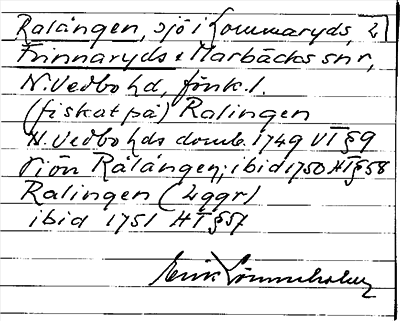 Ralången, sjö i Kommaryds, 2
Frinnaryds & Marbäcks snr,
N. Vedbo hd, Jönk. l.
(fiskat på) Ralingen
N. Vedbo hds domb. 1749 VT § 9
Siön Rålången; ibid 1750 HT § 58
Ralingen (2 ggr)
ibid 1751 HT § 57
Erik Lönnholm